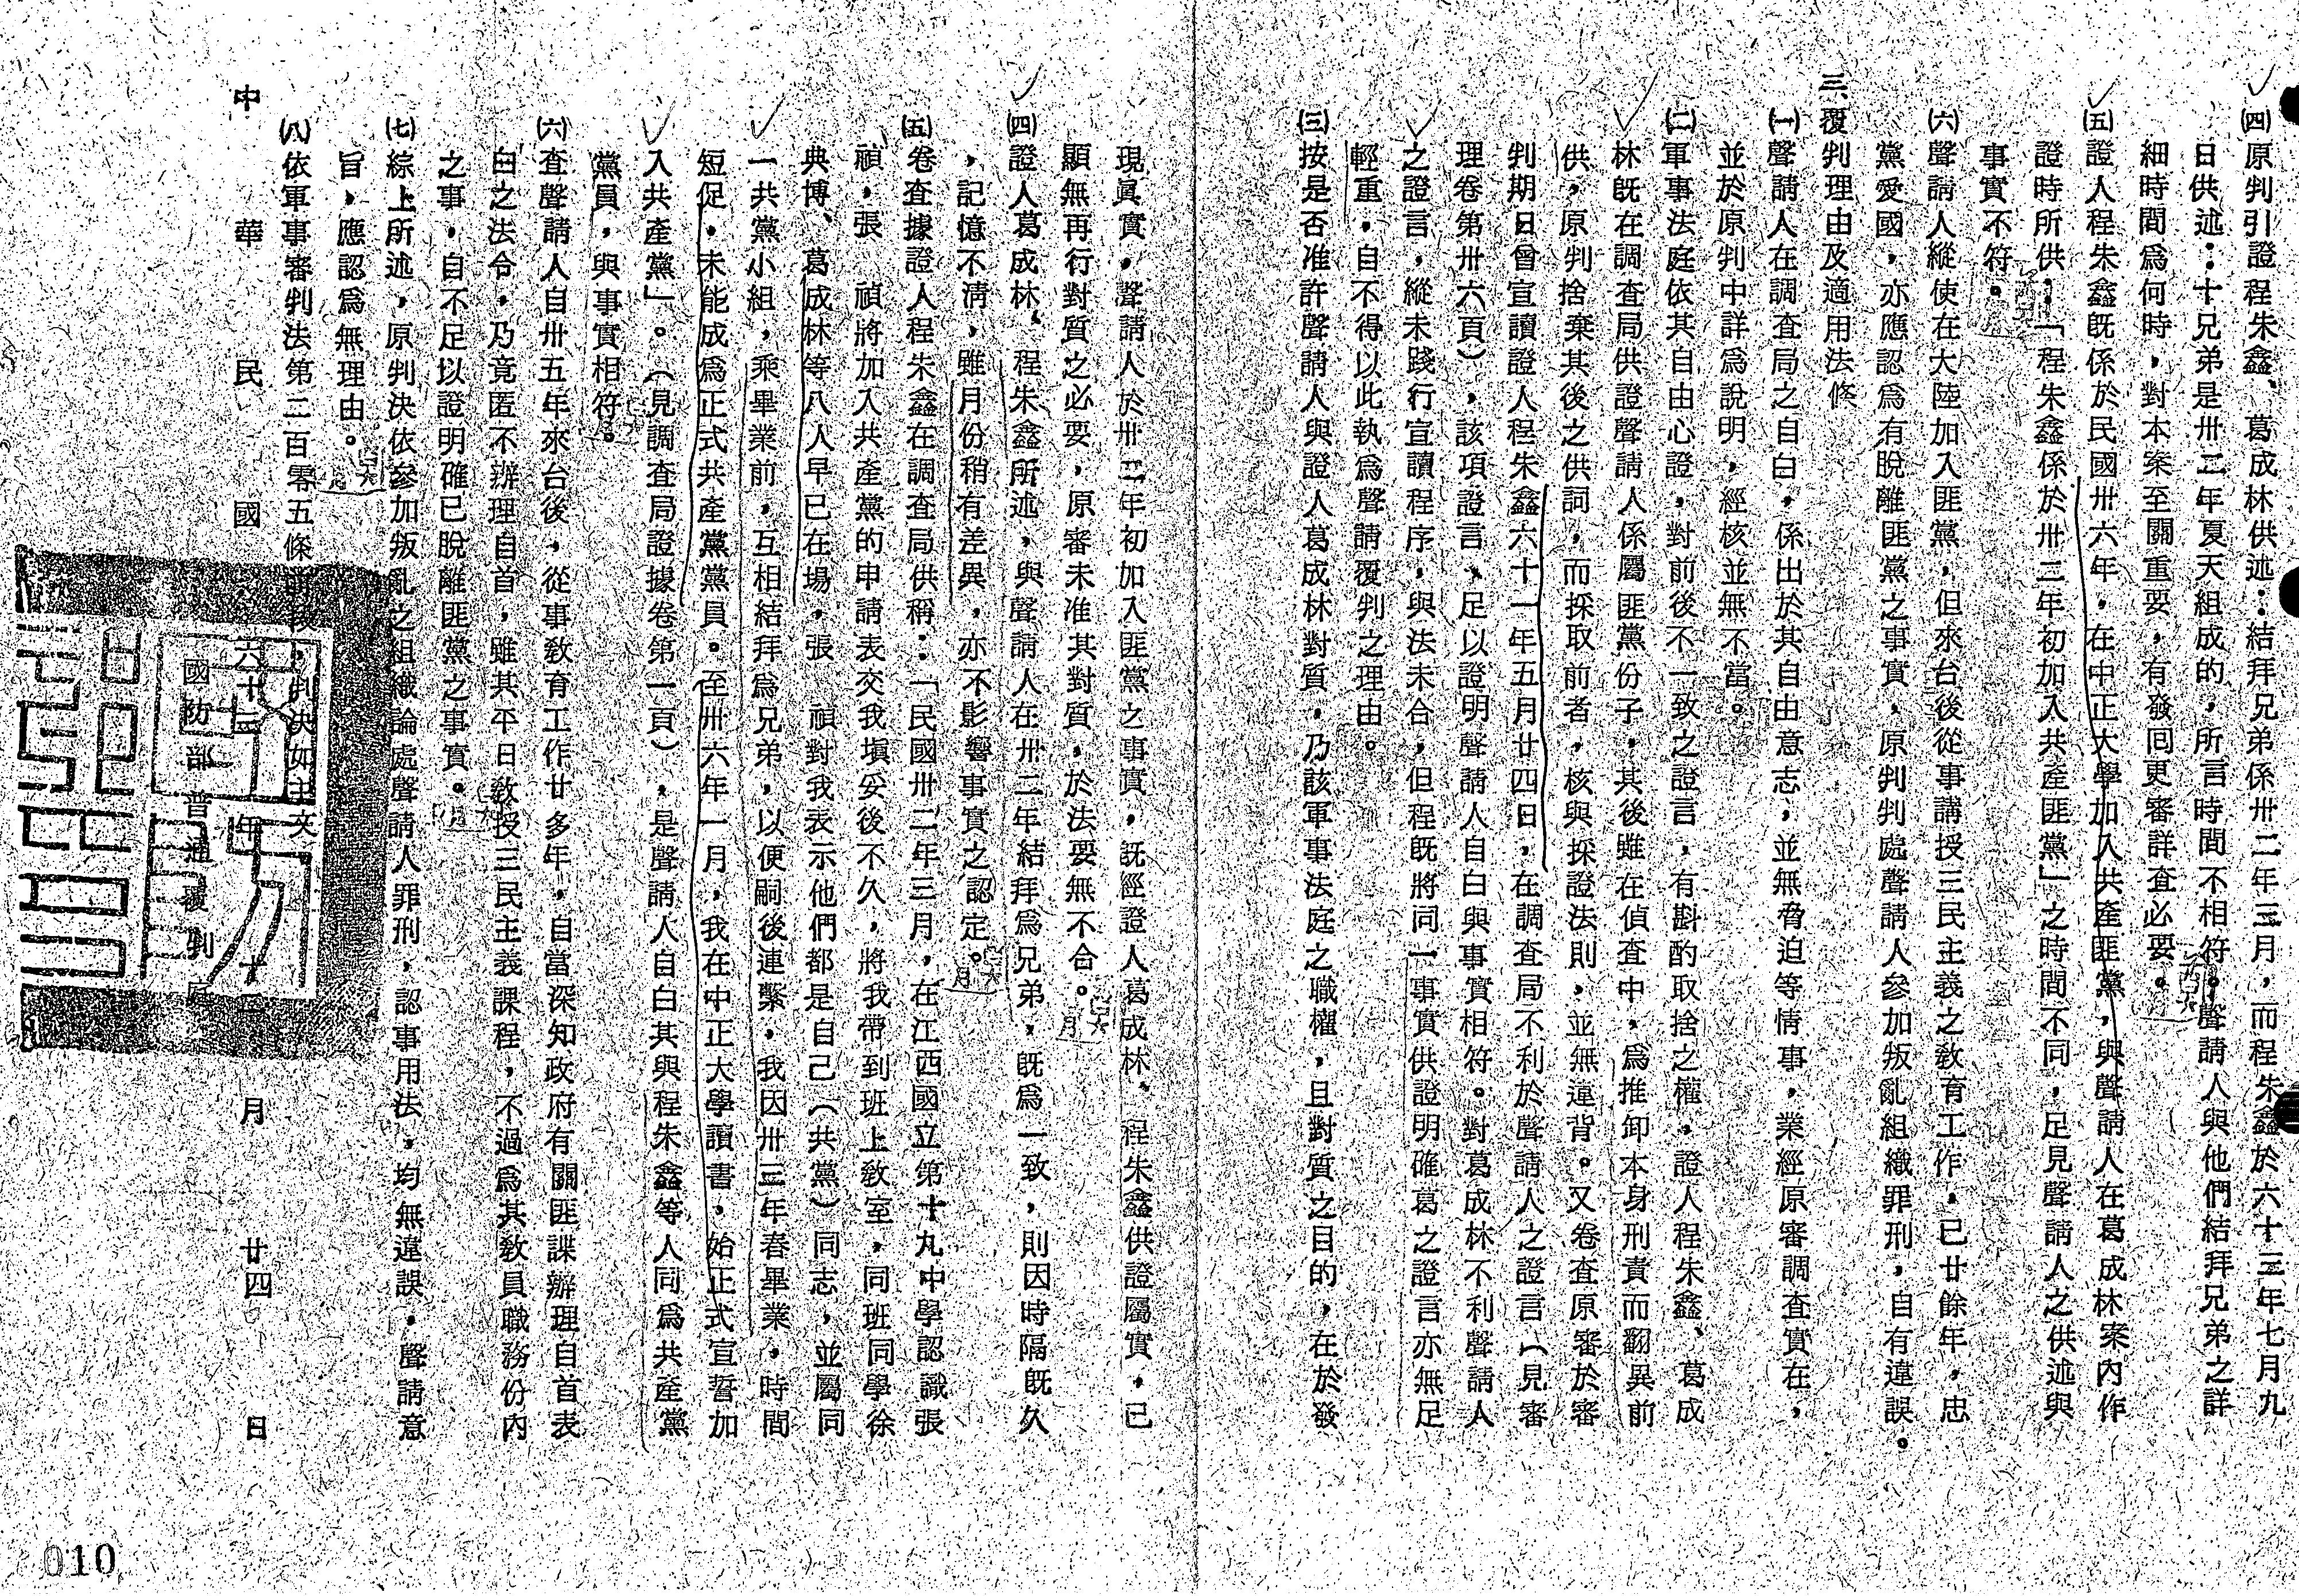 ㈣原判引證程朱鑫、葛成林供述：結拜兄弟係卅二年三月，而程朱鑫於六十三年七月九
日供述：十兄弟是卅二年夏天組成的，所言時間不相符。聲請人與他們結拜兄弟之詳
細時間爲何時，對本案至關重要，有發囘更審詳査必要。
㈤證人程朱鑫旣係於民國卅六年，在中正大學加入共產匪黨，與聲請人在葛成林案內作
證時所供：「程朱鑫係於卅三年初加入共產匪黨」之時間不同，足見聲請人之供述與
事實不符。
㈥聲請人縱使在大陸加入匪黨，但來台後從事講授三民主義之敎育工作，已廿餘年，忠
黨愛國，亦應認爲有脫離匪黨之事實，原判判處聲請人參加叛亂組織罪刑，自有違誤。
三、覆判理由及適用法條
㈠聲請人在調査局之自白，係出於其自由意志，並無脅迫等情事，業經原審調査實在，
並於原判中詳爲說明，經核並無不當。
㈡軍事法庭依其自由心證，對前後不一致之證言，有斟酌取捨之權，證人程朱鑫、葛成
林旣在調査局供證聲請人係屬匪黨份子，其後雖在偵査中，爲推卸本身刑責而翻異前
供，原判捨棄其後之供詞，而採取前者，核與採證法則，並無違背。又卷査原審於審
判期日曾宣讀證人程朱鑫六十一年五月廿四日，在調査局不利於聲請人之證言（見審
理卷第卅六頁），該項證言，足以證明聲請人自白與事實相符。對葛成林不利聲請人
之證言，縱未踐行宣讀程序，與法未合，但程旣將同一事實供證明確葛之證言亦無足
輕重，自不得以此執爲聲請覆判之理由。
㈢按是否准許聲請人與證人葛成林對質，乃該軍事法庭之職權，且對質之目的，在於發
現眞實，聲請人於卅二年初加入匪黨之事實，旣經證人葛成林、程朱鑫供證屬實，已
顯無再行對質之必要，原審未准其對質，於法要無不合。
㈣證人葛成林、程朱鑫所述，與聲請人在卅二年結拜爲兄弟，旣爲一致，則因時隔旣久
，記憶不淸，雖月份稍有差異，亦不影響事實之認定。
㈤卷査據證人程朱鑫在調査局供稱：「民國卅二年三月，在江西國立第十九中學認識張
禎，張　禎將加入共產黨的申請表交我塡妥後不久，將我帶到班上敎室，同班同學徐
典博、葛成林等八人早已在場，張　禎對我表示他們都是自己（共黨）同志，並屬同
一共黨小組，乘畢業前，互相結拜爲兄弟，以便嗣後連繫，我因卅三年春畢業，時間
短促，未能成爲正式共產黨黨員。至卅六年一月，我在中正大學讀書，始正式宣誓加
入共產黨」。（見調査局證據卷第一頁），是聲請人自白其與程朱鑫等人同爲共產黨
黨員，與事實相符。
㈥査聲請人自卅五年來台後，從事敎育工作廿多年，自當深知政府有關匪諜辦理自首表
白之法令，乃竟匿不辦理自首，雖其平日敎授三民主義課程，不過爲其敎員職務份內
之事，自不足以證明確已脫離匪黨之事實。
㈦綜上所述，原判決依參加叛亂之組織論處聲請人罪刑，認事用法，均無違誤，聲請意
旨，應認爲無理由。
㈧依軍事審判法第二百零五條前段，判決如主文
中　華　民　國　六十三　年　十二　月　廿四　日
國防部普通覆判庭
010